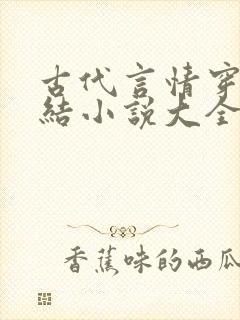 古代言情穿
结小说大全
香蕉味的西瓜